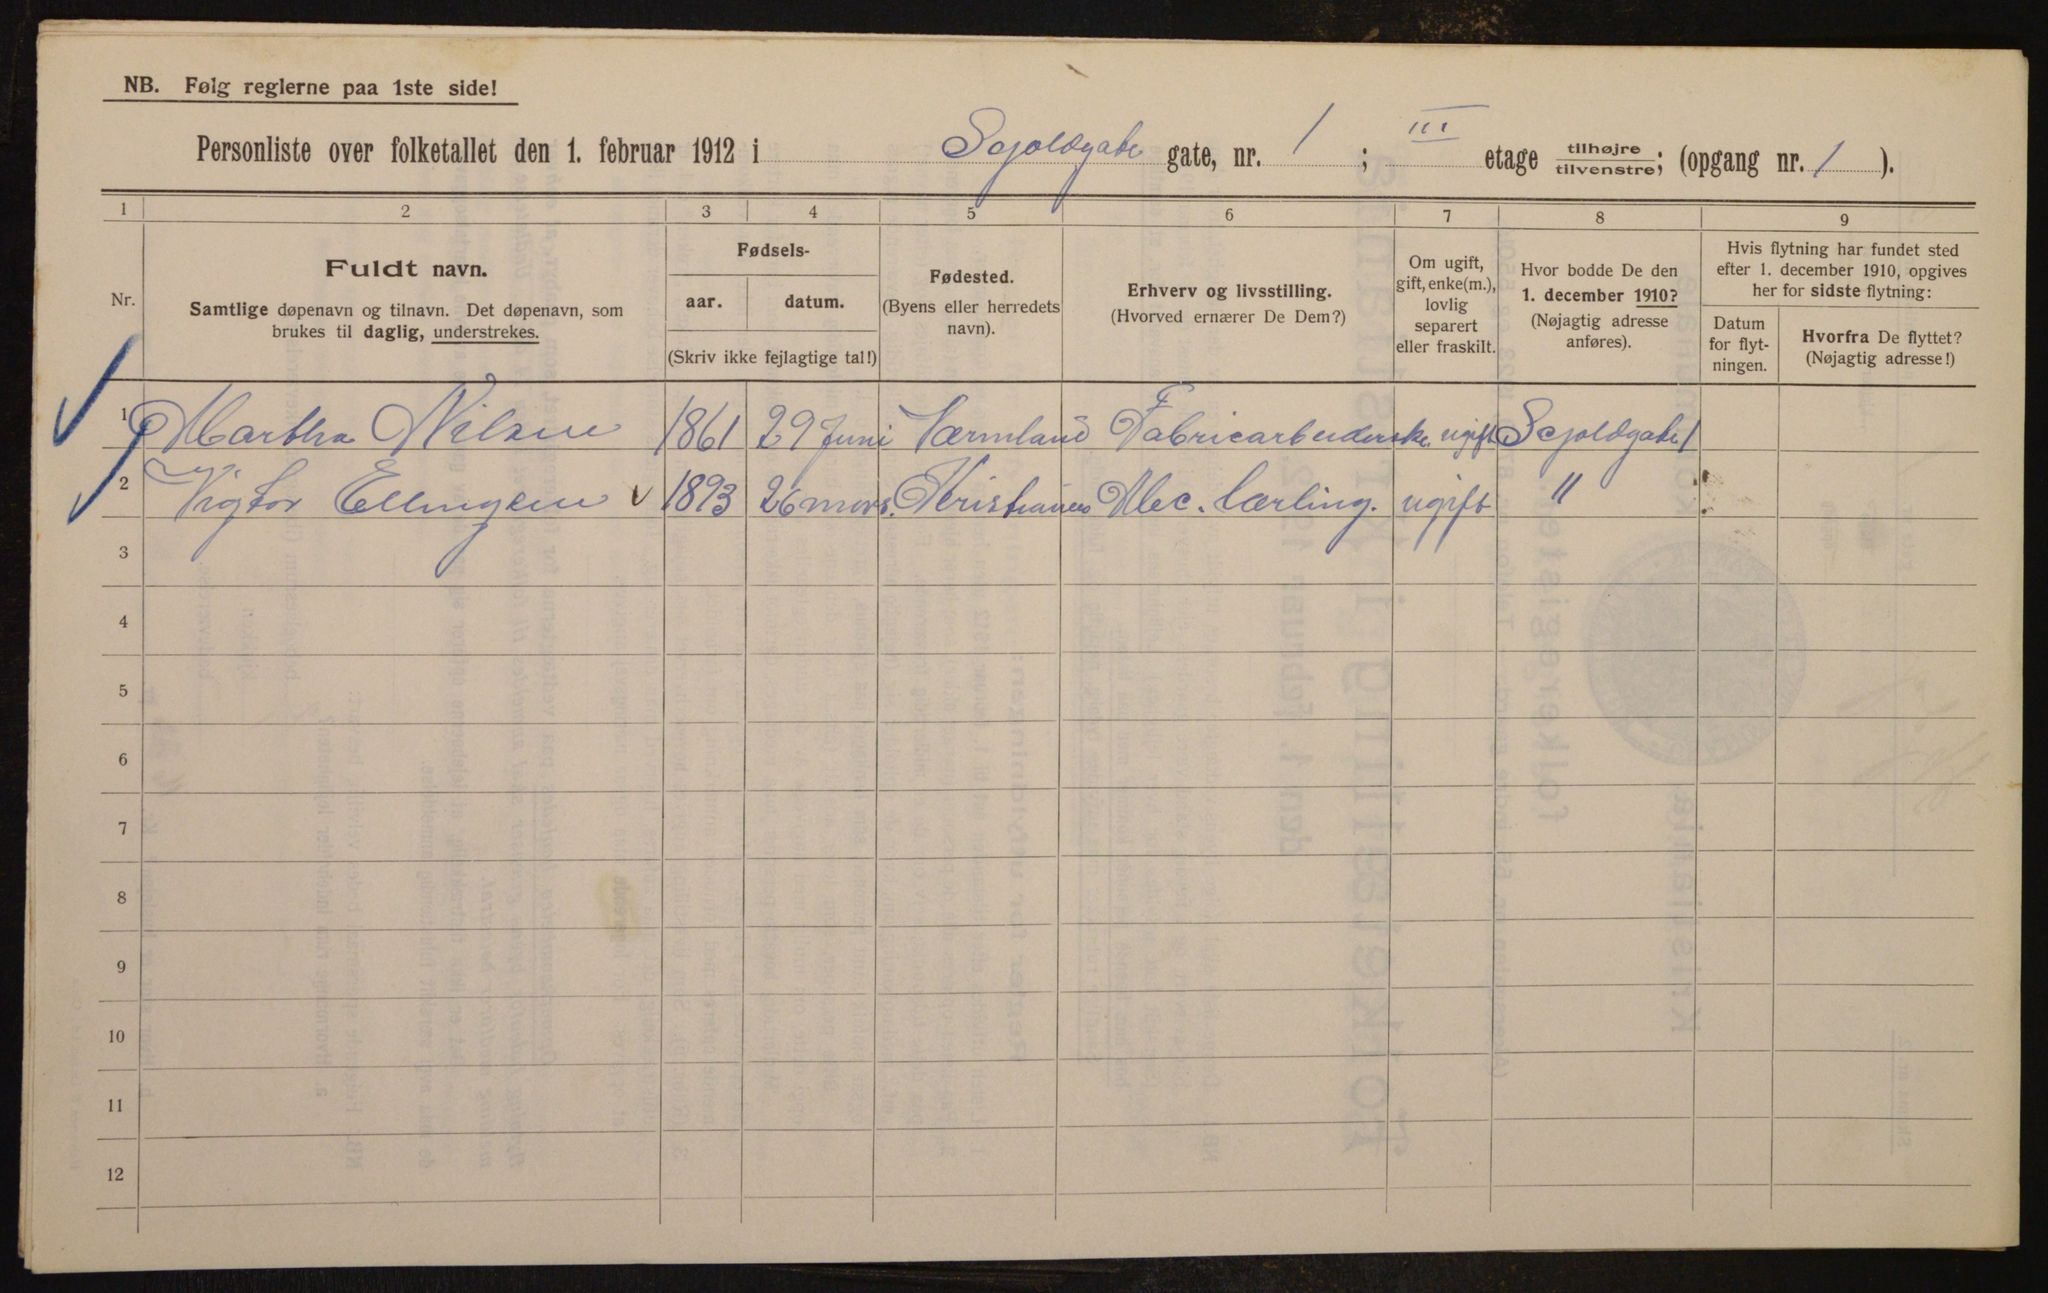 NB. Følg reglerne paa 1ste side!
Personliste over folketallet den 1. februar 1912 i Scjoldgade gate, nr. 1 ; III etage tilhøjre/tilvenstre; (opgang nr. 1 ).
1 2 3 4 5 6 7 8 9
Nr.
Fuldt navn.
Samtlige døpenavn og tilnavn. Det døpenavn, som
brukes til daglig, understrekes.
Fødsels-
aar. datum.
(Skriv ikke fejlagtige tal!)
Fødested.
(Byens eller herredets
navn).
Erhverv og livsstilling.
(Hvorved ernærer De Dem?)
Om ugift,
gift, enke(m.),
lovlig
separert
eller fraskilt.
Hvor bodde De den
1. december 1910?
(Nøjagtig adresse
anføres).
Hvis flytning har fundet sted
efter 1. december 1910, opgives
her for sidste flytning:
Datum
for flyt-
ningen.
Hvorfra De flyttet?
(Nøjagtig adresse!)
1 Martha Nilsen 1861 29 Juni Værmland Fabricarbeiderske. ugift Scjoldgade 1
2 Vigtor Ellingsen 1893 26 mars. Kristiania Mec. Lærling. ugift "
3
4
5
6
7
8
9
10
11
12